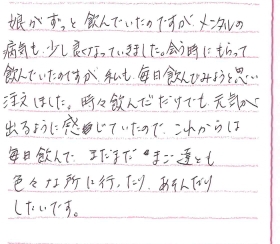 娘がずっと飲んでいたのですが、メンタルの
病気も少し良くなっていきました。会う時にもらって
飲んでいたのですが、私も、毎日飲んでみようと思い
注文しました。時々飲んだだけでも、元気が
出るように感じていたので、これからは
毎日飲んで、まだまだ、まご達とも
色々な所に行ったり、あそんだり
したいです。